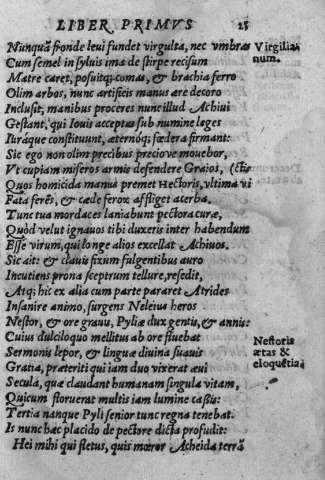 LIBER PRIMVS 25
Nunquã fronde leui fundet virgulta, nec vmbras
Virgilia
num.
Cum semel in syluis imã de stirpe recisum
Matre caret, posuitq; comas, & brachia ferro
Olim arbos, nunc artificis manus ære decoro
Inclusit, manibus proceres nunc illud Achiui
Gestant, qui Iouis acceptas sub numine leges
Iuráque constituunt, æternáq; fœdera firmant:
Sic ego non olim precibus preciove mouebor,
Vt cupiam miseros armis defendere Graios, (ctis
Quos homicida manus premet Hectoris, vltima vi
Fata ferẽs, & cæde ferox affliget acerba.
Tunc tua mordaces laniabunt pectora curæ,
Quòd velut ignauos tibi duxeris inter habendum
Esse virum, qui longe alios excellat Achiuos.
Sic ait: & clauis fixum fulgentibus auro
Incutiens prona sceptrum tellure, resedit,
Atq; hic ex alia cum parte pararet Atrides
Insanire animo, surgens Neleius heros
Nestor, & ore grauu, Pyliæ dux gentis, & annis:
Cuius dulciloquo mellitus ab ore fluebat
Nestoris
ætas &
eloquẽtia
Sermonis lepor, & linguæ diuina suauis
Gratia, præteriti qui iam duo vixerat æui
Secula, quæ claudant humanam singula vitam,
Quicum floruerat multis iam lumine cassis:
Tertia nanque Pyli senior tunc regna tenebat.
Is nunc hæc placido de pectore dicta profudit:
Hei mihi qui fletus, quis mœror Acheida terrã